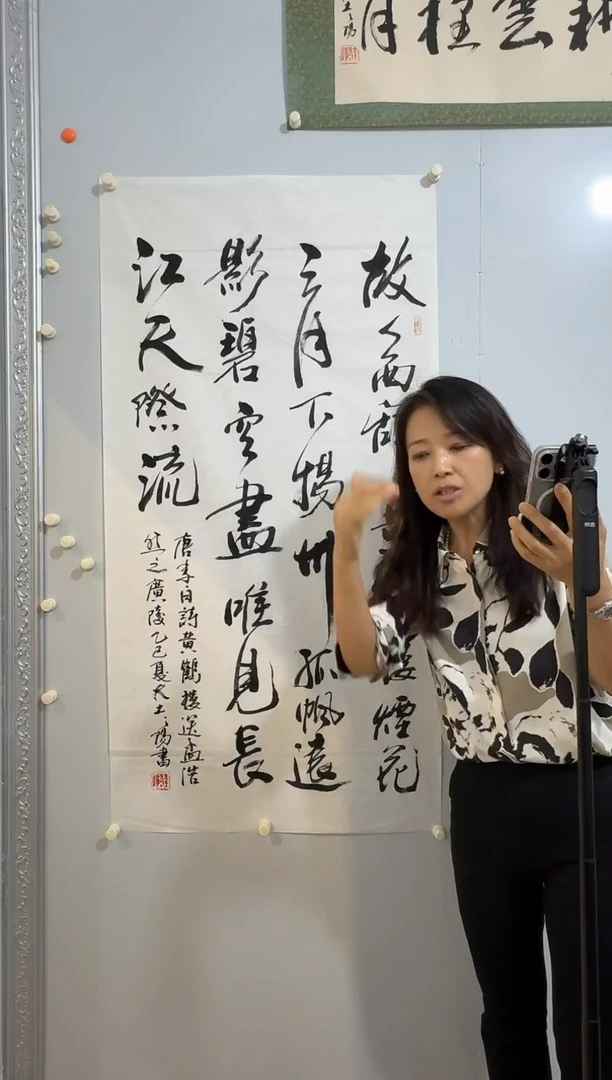 耕雲種月
故人西辭樓煙花
三月下揚州孤帆遠
影碧空盡唯見長
江天際流
唐李白詩黃鶴樓送孟浩
然之廣陵乙巳夏陽書